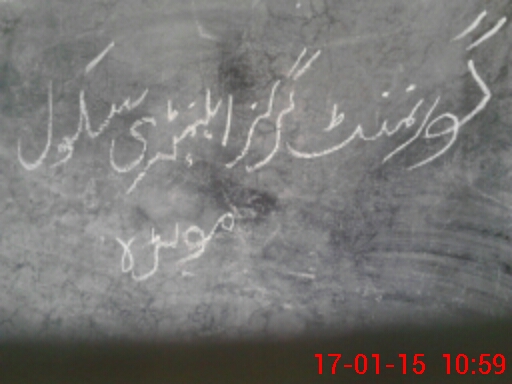 گورنمنٹ گرلز ایلیمنٹری سکول
موہڑہ
17-01-15 10:59